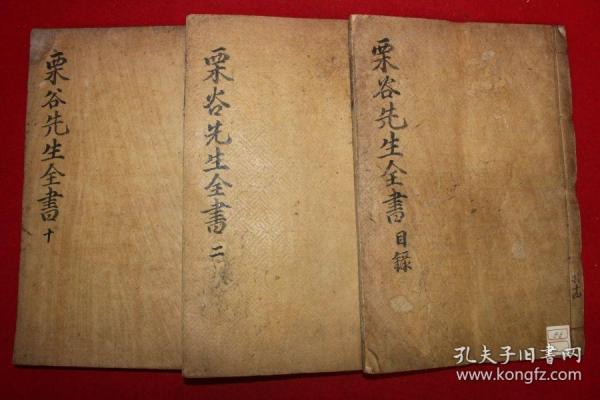 栗谷先生全書 目録
栗谷先生全書 二
栗谷先生全書 十
孔夫子旧書网
www.kongfz.com